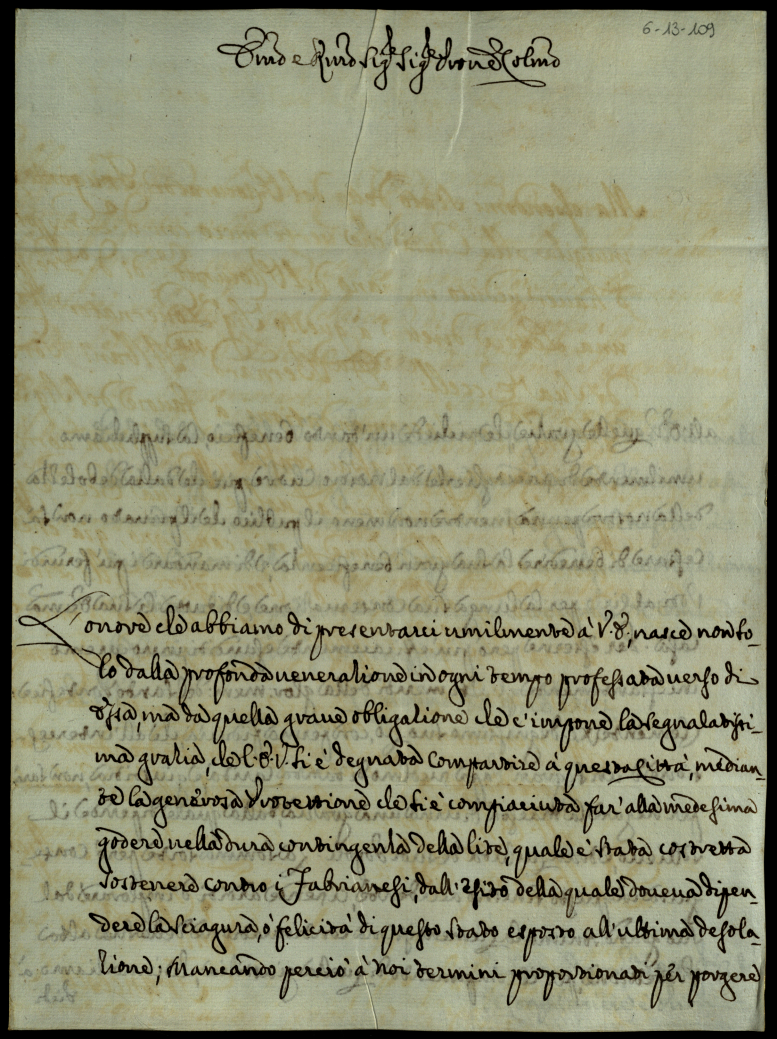 6-13-109
Emo e Rmo Sig.r Sig.r Pron̄e Colmo
L'onore che abbiamo di presentarci umilmente à V.E., nasce non so-
lo dalla profonda veneratione in ogni tempo professata verso di
Essa, mà da quella grave obligatione che c'impone la segnalatissi-
ma gratia, che l'E.V. si è degnata compartire à questa Città, median-
te la generosa Protettione che si è compiaciuta far' alla medesima
godere nella dura contingenza della lite, quale è stata costretta
sostenere contro i Fabrianesi, dall'esito della quale doveva dipen-
dere la sciagura, ò felicità di questo stato esposto all'ultima desola-
tione; Mancando perciò à noi termini proportionati per porgere